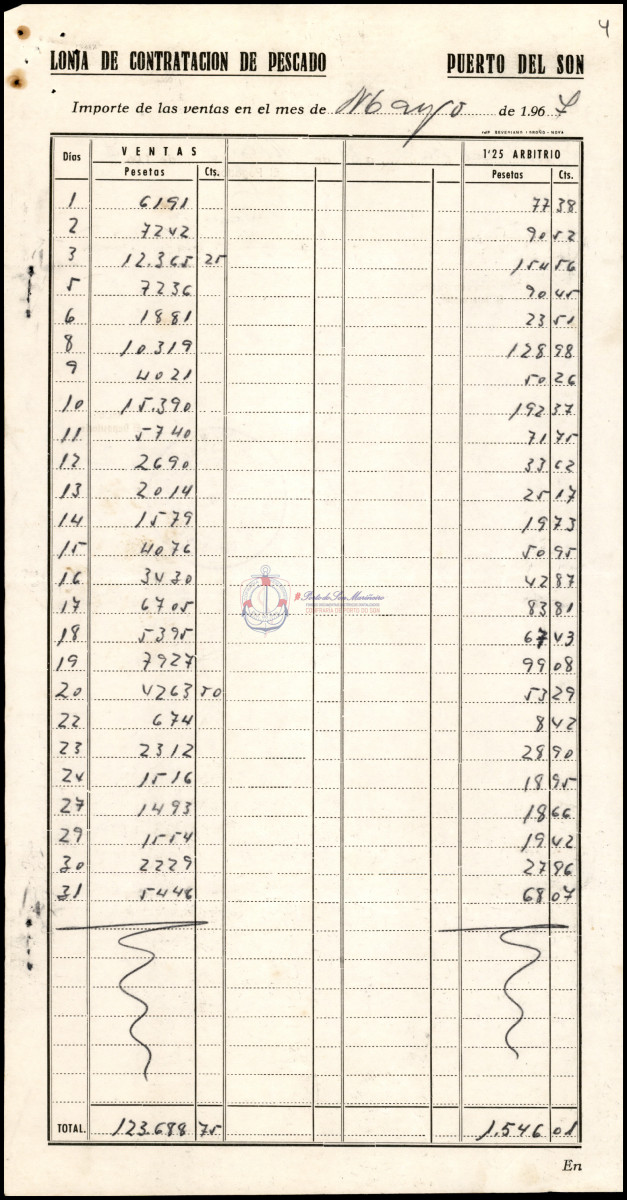 4
LONJA DE CONTRATACION DE PESCADO PUERTO DEL SON
Importe de las ventas en el mes de Mayo de 1.967
Días VENTAS 1'25 ARBITRIO
Pesetas Cts. Pesetas Cts.
1 6191 77 38
2 7242 90 52
3 12.365 25 154 56
5 7236 90 45
6 1881 23 51
8 10319 128 98
9 4021 50 26
10 15.390 192 37
11 5740 71 75
12 2690 33 62
13 2014 25 17
14 1579 19 73
15 4076 50 95
16 3430 42 87
17 6705 83 81
18 5395 67 43
19 7927 99 08
20 4263 50 53 29
22 674 8 42
23 2312 28 90
24 1516 18 95
27 1493 18 66
29 1554 19 42
30 2229 27 86
31 5446 68 07
TOTAL. 123.688 75 1.546 01
En